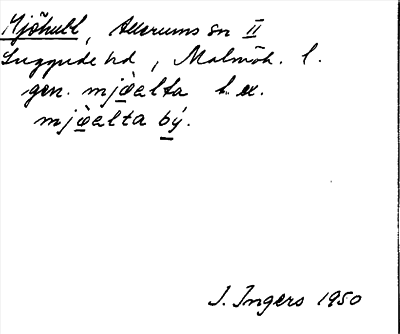 Mjöhult, Allerums sn II
Luggude hd, Malmöh. l.
gen. mjò̱elta t. ex.
mjò̱elta bý.
J. Ingers 1950